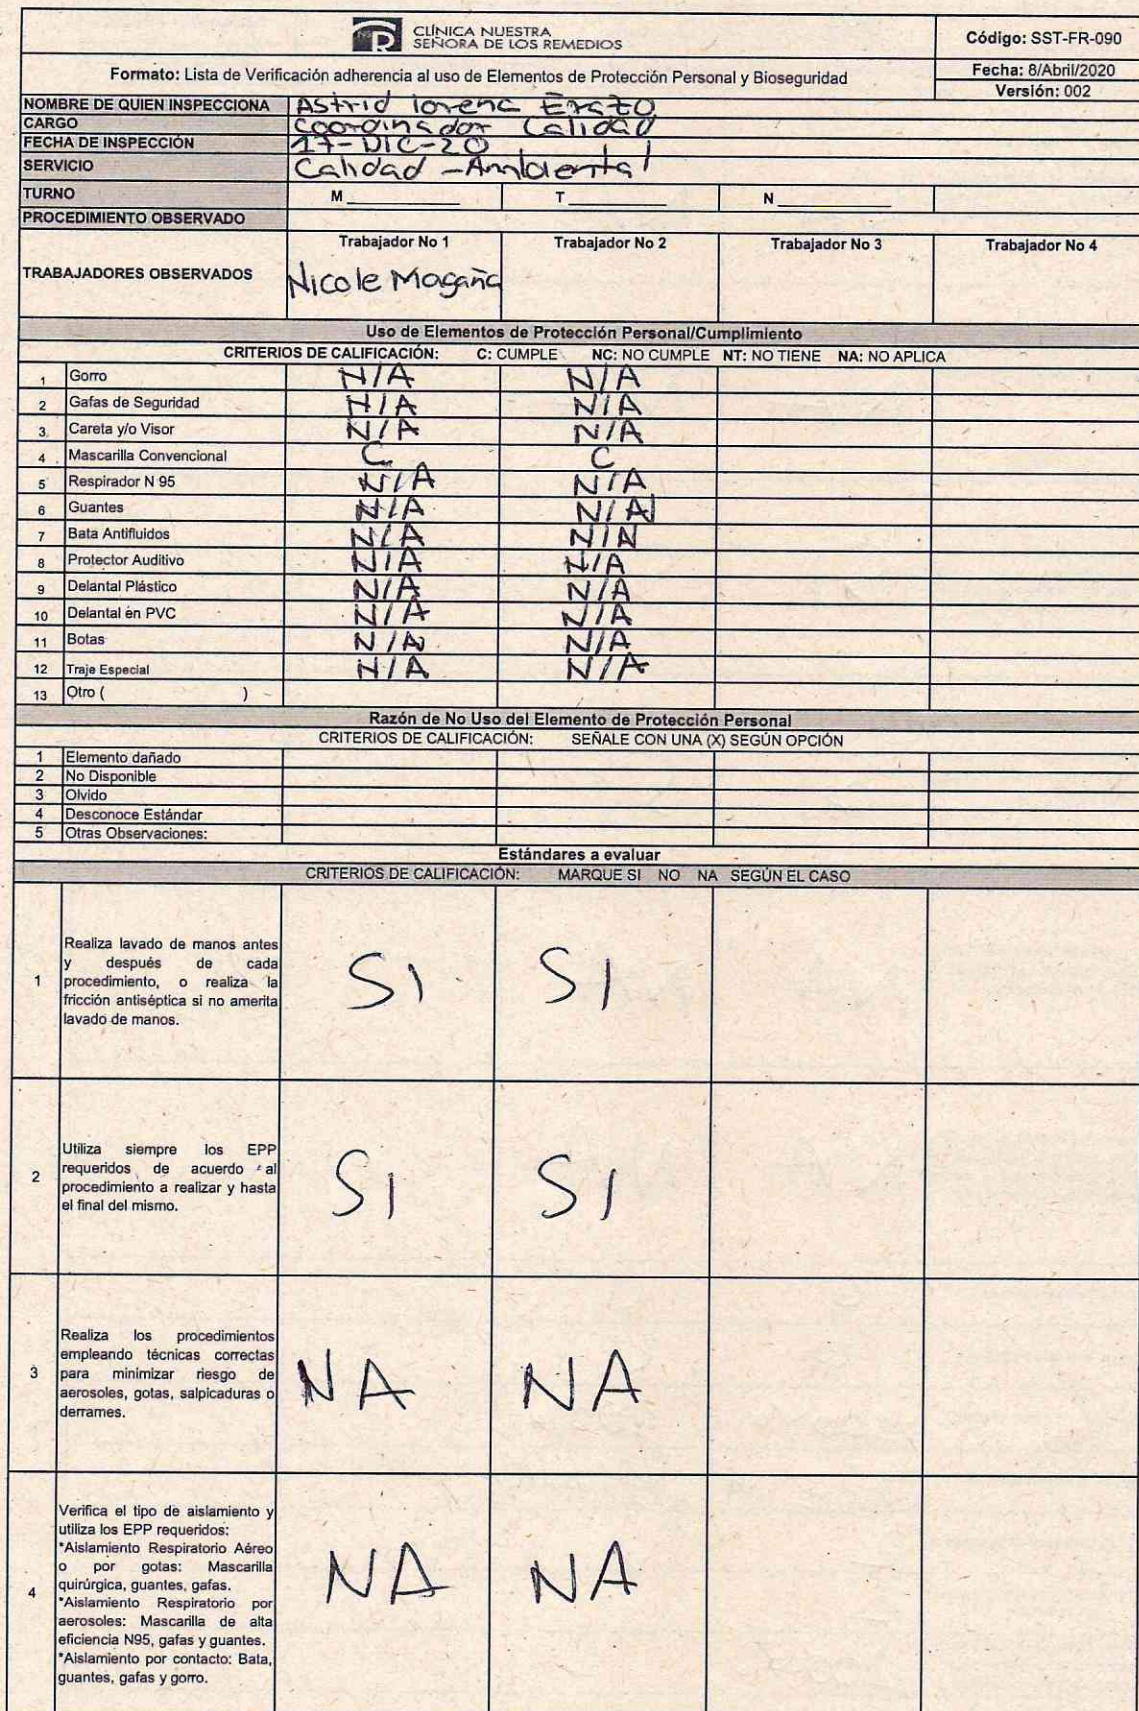 CLÍNICA NUESTRA
SEÑORA DE LOS REMEDIOS
Código: SST-FR-090
Formato: Lista de Verificación adherencia al uso de Elementos de Protección Personal y Bioseguridad
Fecha: 8/Abril/2020
Versión: 002
NOMBRE DE QUIEN INSPECCIONA Astrid lorena Erazo
CARGO Coordinador Calidad
FECHA DE INSPECCIÓN 17-DIC-20
SERVICIO Calidad -Ambiental
TURNO M T N
PROCEDIMIENTO OBSERVADO
Trabajador No 1 Trabajador No 2 Trabajador No 3 Trabajador No 4
TRABAJADORES OBSERVADOS Nicole Magaña
Uso de Elementos de Protección Personal/Cumplimiento
CRITERIOS DE CALIFICACIÓN: C: CUMPLE NC: NO CUMPLE NT: NO TIENE NA: NO APLICA
1 Gorro N/A N/A
2 Gafas de Seguridad N/A N/A
3 Careta y/o Visor N/A N/A
4 Mascarilla Convencional C C
5 Respirador N 95 N/A N/A
6 Guantes N/A N/A
7 Bata Antifluidos N/A N/A
8 Protector Auditivo N/A N/A
9 Delantal Plástico N/A N/A
10 Delantal en PVC N/A N/A
11 Botas N/A N/A
12 Traje Especial N/A N/A
13 Otro ( )
Razón de No Uso del Elemento de Protección Personal
CRITERIOS DE CALIFICACIÓN: SEÑALE CON UNA (X) SEGÚN OPCIÓN
1 Elemento dañado
2 No Disponible
3 Olvido
4 Desconoce Estándar
5 Otras Observaciones:
Estándares a evaluar
CRITERIOS DE CALIFICACIÓN: MARQUE SI NO NA SEGÚN EL CASO
Realiza lavado de manos antes
y después de cada
1 procedimiento, o realiza la SI SI
fricción antiséptica si no amerita
lavado de manos.
Utiliza siempre los EPP
2 requeridos de acuerdo al SI SI
procedimiento a realizar y hasta
el final del mismo.
Realiza los procedimientos
empleando técnicas correctas
3 para minimizar riesgo de NA NA
aerosoles, gotas, salpicaduras o
derrames.
Verifica el tipo de aislamiento y
utiliza los EPP requeridos:
*Aislamiento Respiratorio Aéreo
o por gotas: Mascarilla
4 quirúrgica, guantes, gafas. NA NA
*Aislamiento Respiratorio por
aerosoles: Mascarilla de alta
eficiencia N95, gafas y guantes.
*Aislamiento por contacto: Bata,
guantes, gafas y gorro.